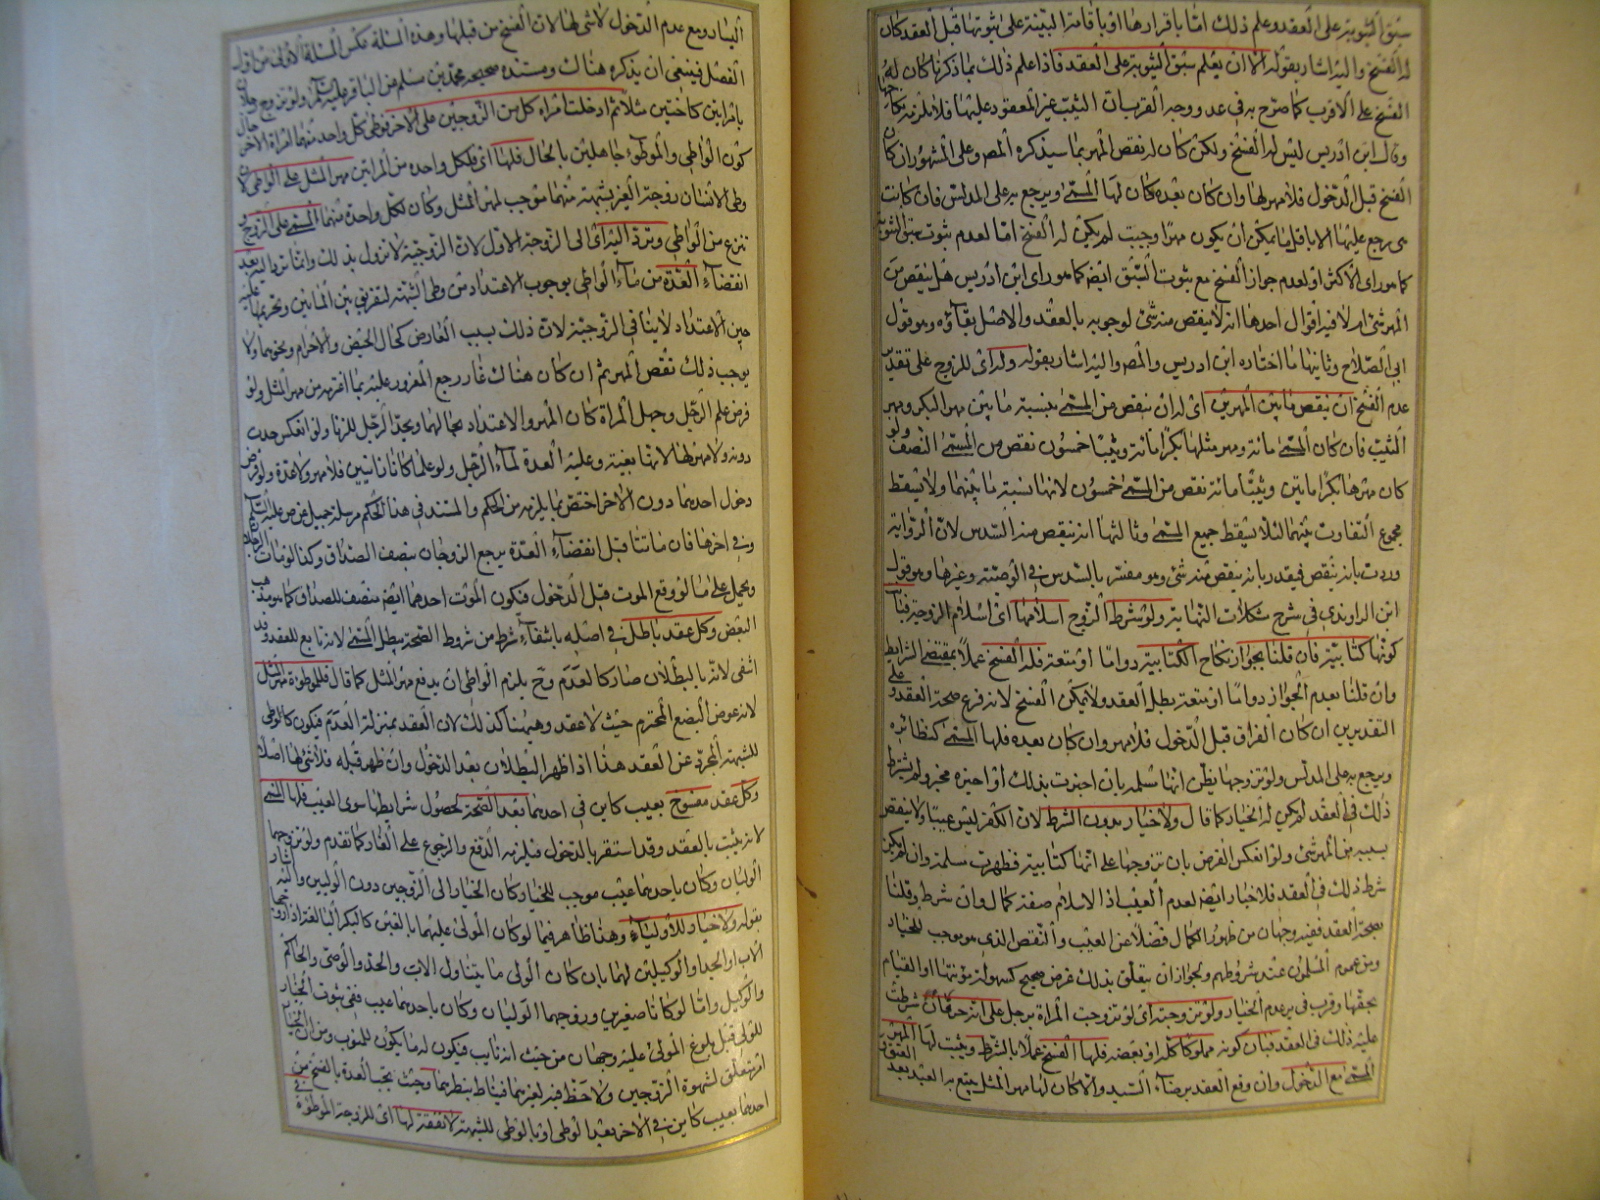 سبق الثيوبة على العقد وعلم ذلك اما باقرارها او باقامة البينة على ثبوتها قبل العقد كان
له الفسخ واليه اشار بقوله الا ان يعلم سبق الثيوبة على العقد فاذا علم ذلك بما ذكرنا كان له
الفسخ على الاقرب كما صرح به في عد ووجه القرب ان الثيب غير المعقود عليها فلا يلزمه نكاحها
وقال ابن ادريس ليس له الفسخ ولكن كان له نقص المهر بما سيذكره المص وعلى المشهور ان كان
الفسخ قبل الدخول فلا مهر لها وان كان بعده كان لها المسمى ويرجع به على المدلس فان كانت
هي رجع عليها الا باقل ما يمكن ان يكون مهرا وحيث لم يكن له الفسخ اما لعدم ثبوت سبق الثيوبة
كما هو راى الاكثر او لعدم جواز الفسخ مع ثبوت السبق ايضا كما هو راى ابن ادريس هل ينقص من
المهر شئ ام لا فيه اقوال احدها انه لا ينقص منه شئ لوجوبه بالعقد والاصل بقاؤه وهو قول
ابي الصلاح وثانيها ما اختاره ابن ادريس والمص واليه اشار بقوله وله اى للزوج على تقدير
عدم الفسخ ان ينقص ما بين المهرين اى له ان ينقص من المسمى بنسبة ما بين مهر البكر ومهر
الثيب فان كان المسمى مائة ومهر مثلها بكرا مائة وثيبا خمسون نقص من المسمى النصف ولو
كان مهرها بكرا مايتين وثيبا مائة نقص من المسمى خمسون لانها نسبة ما بينهما ولا يسقط
مجموع التفاوت بينهما لئلا يسقط جميع المسمى وثالثها انه ينقص منه السدس لان الرواية
وردت بانه ينقص فيقدر بانه ينقص منه شئ وهو مفسر بالسدس في الوصية وغيرها وهو قول
ابن الراوندي في شرح مشكلات النهاية ولو شرط الزوج اسلامها اى اسلام الزوجة فبان
كونها كتابية فان قلنا بجواز نكاح الكتابية دواما او متعة فله الفسخ عملا بمقتضى الشرايط
وان قلنا بعدم الجواز دواما او متعة بطل العقد ولا يمكن الفسخ لانه فرع صحة العقد وعلى
التقديرين ان كان الفراق قبل الدخول فلا مهر وان كان بعده فلها المسمى كنظائره
ويرجع به على المدلس ولو تزوجها بظن انها مسلمة بان اخبرت بذلك او اخبره مخبر ولم يشترط
ذلك في العقد لم يكن له الخيار كما قال ولا خيار بدون الشرط لان الكفر ليس عيبا ولا ينقص
بسببه من المهر شئ ولو انعكس الفرض بان تزوجها على انها كتابية فظهرت مسلمة وان لم يكن
شرط ذلك في العقد فلا خيار ايضا لعدم العيب اذ الاسلام صفة كمال وان شرط وقلنا
بصحة العقد ففيه وجهان من ظهور الكمال فضلا عن العيب والنقص الذى هو موجب للخيار
ومن عموم المسلمون عند شروطهم ولجواز ان يتعلق بذلك غرض صحيح كسهولة مؤنتها او القيام
بحقها وقرب في ير عدم الخيار ولو تزوجته اى لو تزوجت المراة برجل على انه حر فان شرطت
عليه ذلك في العقد فبان كونه مملوكا كله او بعضه فلها الفسخ عملا بالشرط ويثبت لها المهر
المسمى مع الدخول وان وقع العقد برضاء السيد والا كان لها مهر المثل يتبع به العبد بعد العتق
اليسار ومع عدم الدخول لا شئ لها لان الفسخ من قبلها وهذه المسئلة عكس المسئلة الاولى من اول
الفصل فينبغي ان يذكره هناك ومستنده صحيحة محمد بن مسلم عن الباقر عليه السلام ولو تزوج رجلان
بامراتين كاختين مثلا ثم ادخلت امراة كل من الزوجين على الاخر فوطى كل واحد منهما امراة الاخر حال
كون الواطى والموطوءة جاهلين بالحال فلها اى فلكل واحدة من المراتين مهر المثل على الواطى لان
وطى الانسان زوجة الغير بشبهة منهما موجب لمهر المثل وكان لكل واحدة منهما المسمى على الزوج و
تنزع من الواطى وترد اليه اى الى الزوجة الاول لان الزوجية لا تزول بذلك وانما ترد اليه بعد
انقضاء العدة من ماء الواطى لوجوب الاعتداد من وطى الشبهة ليفرق بين المائين وتحريمها عليه
حين الاعتداد لا ينافى الزوجية لان ذلك بسبب العارض كحال الحيض والاحرام ونحوهما ولا
يوجب ذلك نقص المهر ثم ان كان هناك غار رجع المغرور عليه بما اغترمه من مهر المثل ولو
فرض علم الرجل وجهل المراة كان المهر والاعتداد بحالهما ويحد الرجل للزنا ولو انعكس حدت
دونه ولا مهر لها لانها بغية وعليه العدة لماء الرجل ولو علما كانا زانيين فلا مهر ولا عدة ولو فرض
دخول احدهما دون الاخر اختص بما يلزمه من الحكم والمستند في هذا الحكم مرسلة جميل عن ص عليه السلم
وفي اخرها فان ماتتا قبل انقضاء العدة يرجع الزوجان بنصف الصداق وكذا لو مات الرجلان
ويحمل على ما لو وقع الموت قبل الدخول فيكون الموت احدهما ايضا منصف للصداق كما هو مذهب
البعض وكل عقد باطل في اصله بانتفاء شرط من شروط الصحة يبطل المسمى لانه تابع للعقد وقد
انتفى لانه بالبطلان صار كالعدم وح يلزم الواطى ان يدفع مهر المثل كما قال فللموطوءة مهر المثل
لانه عوض البضع المحترم حيث لا عقد وههنا كذلك لان العقد بمنزلة العدم فيكون كالوطى
للشبهة المجرد عن العقد هذا اذا ظهر البطلان بعد الدخول وان ظهر قبله فلا شئ لها اصلا
وكل عقد مفسوخ بعيب كاين في احدهما بعد الصحة لحصول شرايطها سوى العيب فلها المسمى
لانه يثبت بالعقد وقد استقر بالدخول فيلزمه الدفع والرجوع على الغار كما تقدم ولو زوجهما
الوليان وكان باحدهما عيب موجب للخيار وكان الخيار الى الزوجين دون الوليين واليه اشار
بقوله ولا خيار للاولياء وهذا ظاهر فيما لو كان المولى عليهما بالغين كالبكر البالغة اذا زوجها
الاب او الجد او الوكيلين لهما بان كان الولى ما يتناول الاب والجد والوصى والحاكم
والوكيل واما لو كانا صغيرين وزوجهما الوليان وكان باحدهما عيب ففي ثبوت الخيار
للولى قبل بلوغ المولى عليه وجهان من حيث انه نايب فيكون له ما يكون للمنوب ومن ان الخيار
امر يتعلق لشهوة الزوجين ولا حظ فيه لغيرهما فيناط بنظرهما وحيث يجب العدة بالفسخ من
احدهما بعيب كاين في الاخر بعد الوطى او بالوطى للشبهة لا نفقة لها اى للزوجة الموطوءة في